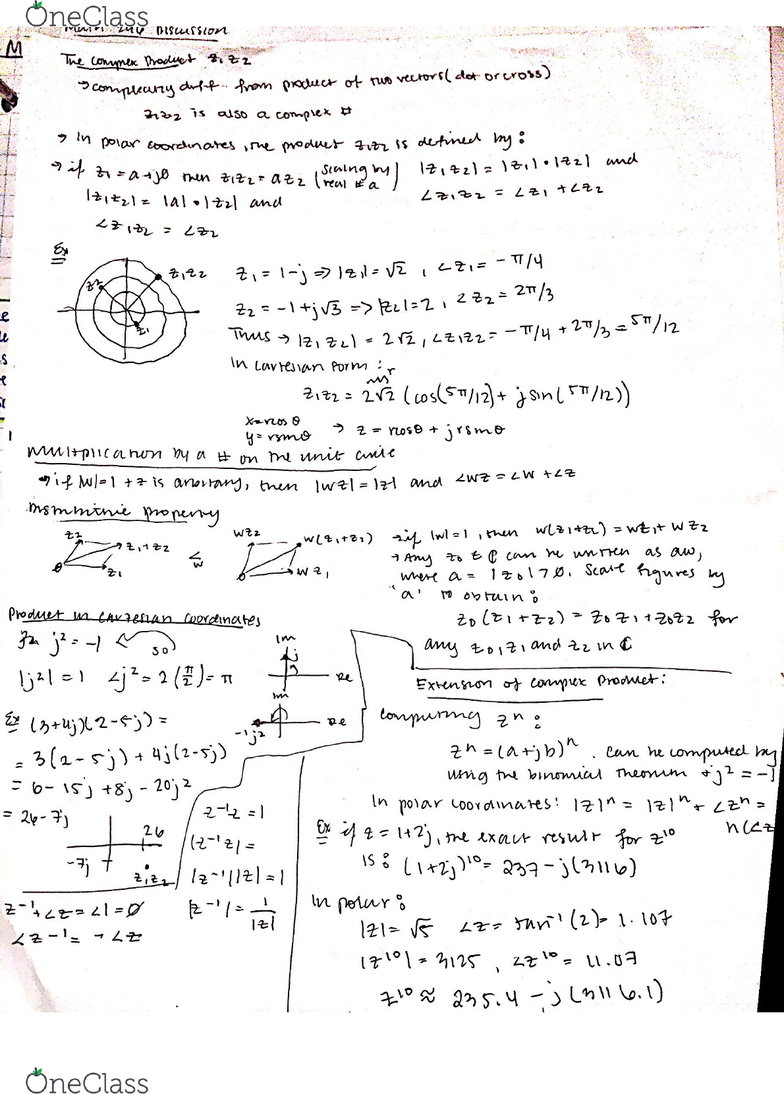 OneClass
Math 246 Discussion
M
The Complex Product z₁z₂
→ completely diff. from product of two vectors (dot or cross)
z₁z₂ is also a complex #
→ In polar coordinates, the product z₁z₂ is defined by:
|z₁z₂| = |z₁|•|z₂| and
∠z₁z₂ = ∠z₁ + ∠z₂
→ if z₁ = a + j0 then z₁z₂ = az₂ (scaling by real # a)
|z₁z₂| = |a|•|z₂| and
∠z₁z₂ = ∠z₂
Ex
z₂
z₁z₂
z₁
z₁ = 1-j ⇒ |z₁| = √2, ∠z₁ = -π/4
z₂ = -1+j√3 ⇒ |z₂| = 2, ∠z₂ = 2π/3
Thus → |z₁z₂| = 2√2, ∠z₁z₂ = -π/4 + 2π/3 = 5π/12
In Cartesian Form:
r
z₁z₂ = 2√2 (cos(5π/12) + j sin(5π/12))
x = rcosθ
y = rsinθ → z = rcosθ + jrsinθ
Multiplication by a # on the unit circle
→ if |w| = 1 + z is arbitrary, then |wz| = |z| and ∠wz = ∠w + ∠z
z₂
z₁+z₂
0
z₁
∠w
wz₂
w(z₁+z₂)
0
wz₁
→ if |w| = 1, then w(z₁+z₂) = wz₁ + wz₂
→ Any z₀ ∈ ℂ can be written as aw,
where a = |z₀| ≥ 0. Scale figures by
"a" to obtain:
z₀(z₁+z₂) = z₀z₁ + z₀z₂ for
any z₀, z₁ and z₂ in ℂ
Product in Cartesian Coordinates
j² = -1
so
|j²| = 1 ∠j² = 2(π/2) = π
Im
j
Re
Im
-1 j²
Re
Ex (3+4j)(2-5j) =
= 3(2-5j) + 4j(2-5j)
= 6 - 15j + 8j - 20j²
= 26 - 7j
26
-7j
z₁z₂
z⁻¹z = 1
|z⁻¹z| =
|z⁻¹||z| = 1
|z⁻¹| = 1/|z|
z⁻¹ + ∠z = ∠1 = 0
∠z⁻¹ = -∠z
Extension of Complex Product:
Computing zⁿ:
zⁿ = (a+jb)ⁿ. Can be computed by
using the binomial theorem + j² = -1
In polar coordinates: |z|ⁿ = |z|ⁿ + ∠zⁿ =
n(∠z
Ex if z = 1+2j, the exact result for z¹⁰
is: (1+2j)¹⁰ = 237 - j(3116)
In polar:
|z| = √5 ∠z = tan⁻¹(2) = 1.107
|z¹⁰| = 3125, ∠z¹⁰ = 11.07
z¹⁰ ≈ 235.4 - j(3116.1)
OneClass